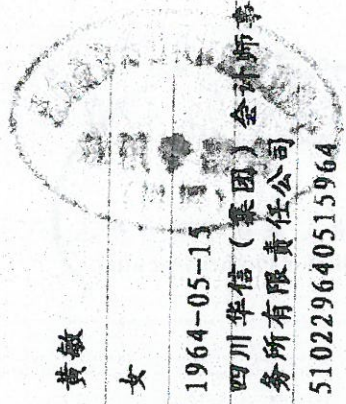 黄敏
女
1964-05-15
四川华信（集团）会计师事
务所有限责任公司
510229640515964